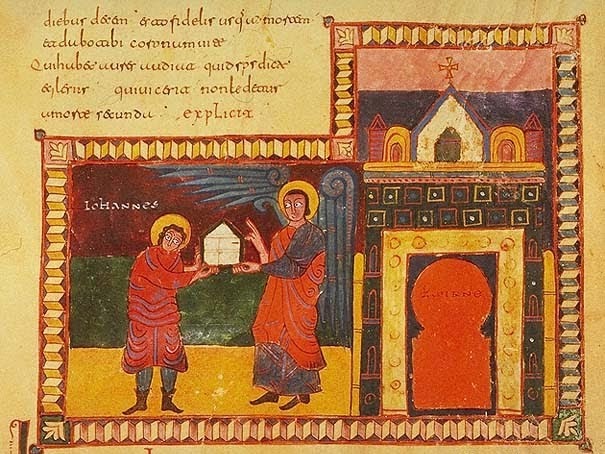 diebus decem esto fidelis usque mortem
et dabo tibi coronam uite
Qui habet aures audiat quid sps dicat
eclesiis qui uicerit non ledetur
a morte secunda explicit
IOHANNES